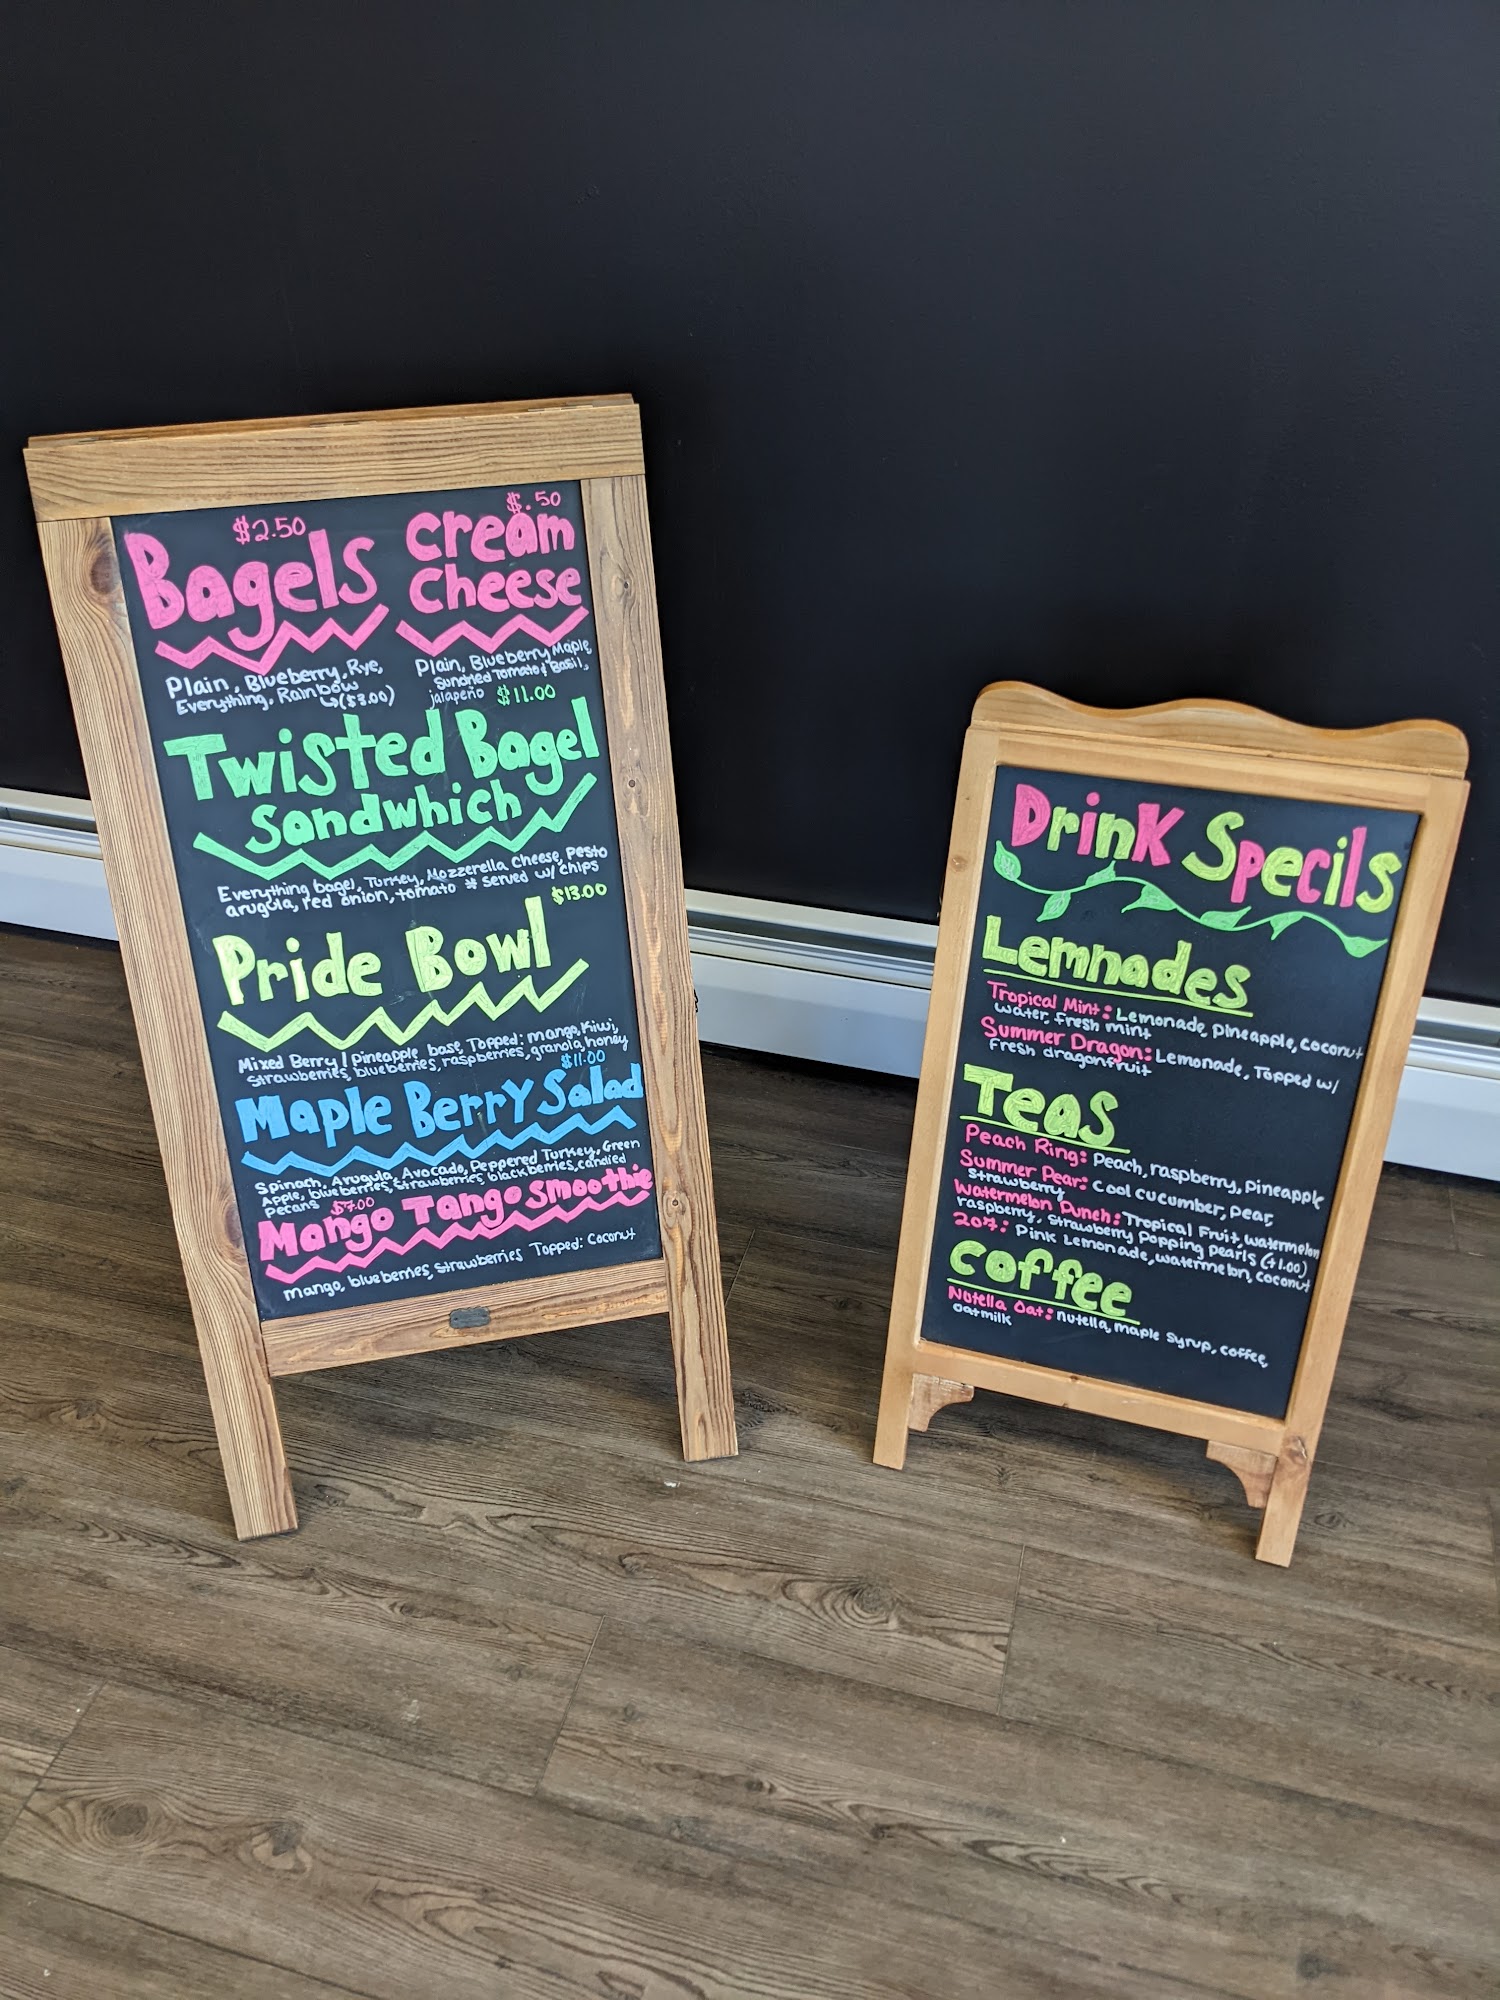 $2.50
Bagels
Plain, Blueberry, Rye,
Everything, Rainbow
↳($3.00)
$.50
cream
cheese
Plain, Blueberry, Maple,
Sundried Tomato & Basil,
jalapeño
$11.00
Twisted Bagel
Sandwhich
Everything bagel, Turkey, Mozzerella Cheese, Pesto
arugula, red onion, tomato * served w/ chips
$13.00
Pride Bowl
Mixed Berry / pineapple base, Topped: mango, Kiwi,
Strawberries, blueberries, raspberries, granola, honey
$11.00
Maple Berry Salad
Spinach, Arugula, Avocado, Peppered Turkey, Green
Apple, blueberries, strawberries, blackberries, candied
Pecans
$7.00
Mango Tango Smoothie
mango, blueberries, strawberries Topped: Coconut
Drink Specils
Lemnades
Tropical Mint: Lemonade, pineapple, coconut
water, fresh mint
Summer Dragon: Lemonade, Topped w/
fresh dragonfruit
Teas
Peach Ring: Peach, raspberry, Pineapple
Summer Pear: Cool cucumber, pear,
strawberry
Watermelon Punch: Tropical Fruit, watermelon
raspberry, strawberry Popping pearls (+1.00)
207: Pink Lemonade, watermelon, coconut
coffee
Nutella Oat: nutella, maple syrup, coffee,
oatmilk